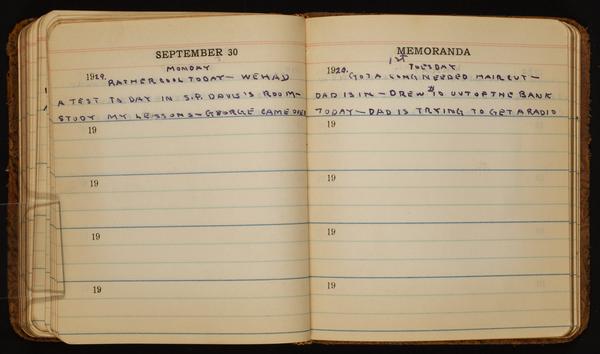 SEPTEMBER 30
MONDAY
1929. RATHER COOL TODAY - WE HAD
A TEST TO DAY IN S.P. DAVIS'S ROOM -
STUDY MY LESSONS - GEORGE CAME OVER
19
19
19
19
MEMORANDA
1st
TUESDAY
1929. GOT A LONG NEEDED HAIRCUT -
DAD IS IN - DREW $10 OUT OF THE BANK
TODAY - DAD IS TRYING TO GET A RADIO
19
19
19
19